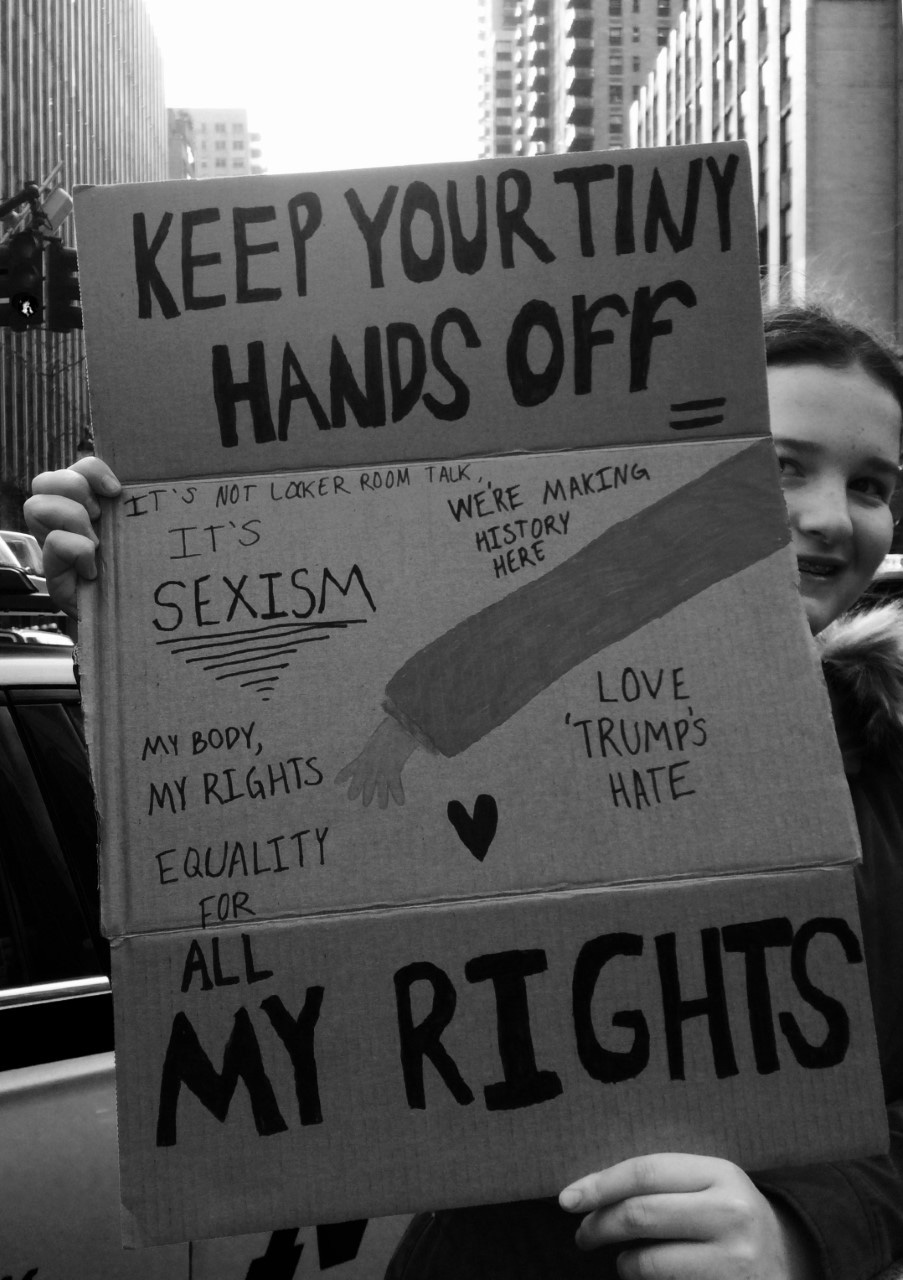 KEEP YOUR TINY
HANDS OFF
IT'S NOT LOCKER ROOM TALK,
IT'S
SEXISM
WE'RE MAKING
HISTORY
HERE
MY BODY,
MY RIGHTS
LOVE
'TRUMP'S
HATE
EQUALITY
FOR
ALL
MY RIGHTS